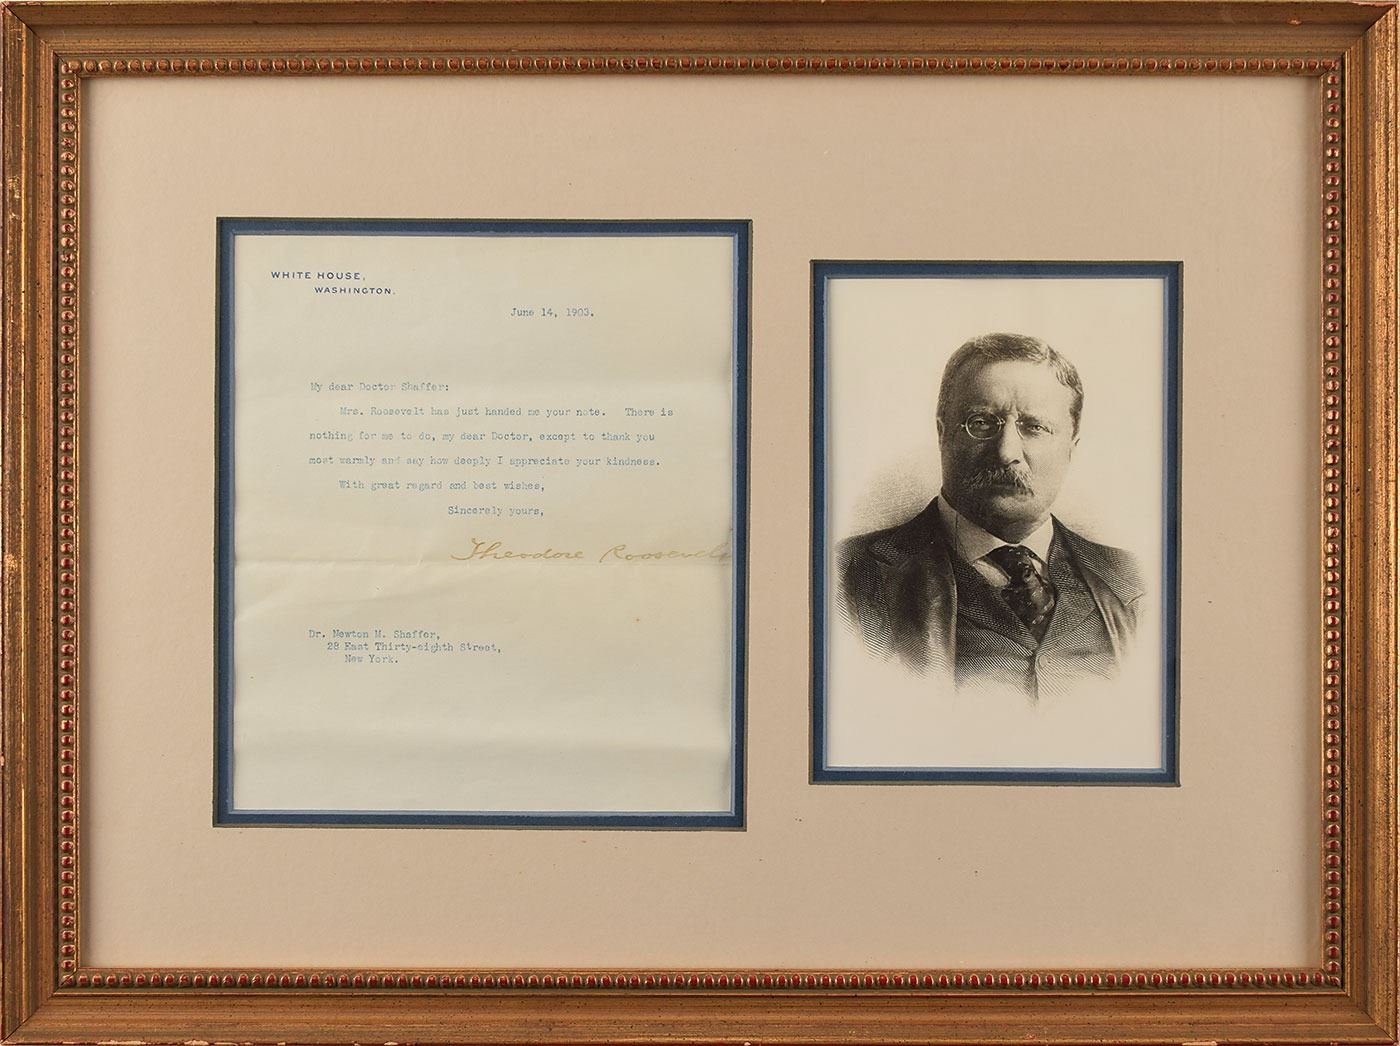 WHITE HOUSE,
WASHINGTON.
June 14, 1903.
My dear Doctor Shaffer:
Mrs. Roosevelt has just handed me your note. There is
nothing for me to do, my dear Doctor, except to thank you
most warmly and say how deeply I appreciate your kindness.
With great regard and best wishes,
Sincerely yours,
Theodore Roosevelt
Dr. Newton M. Shaffer,
28 East Thirty-eighth Street,
New York.